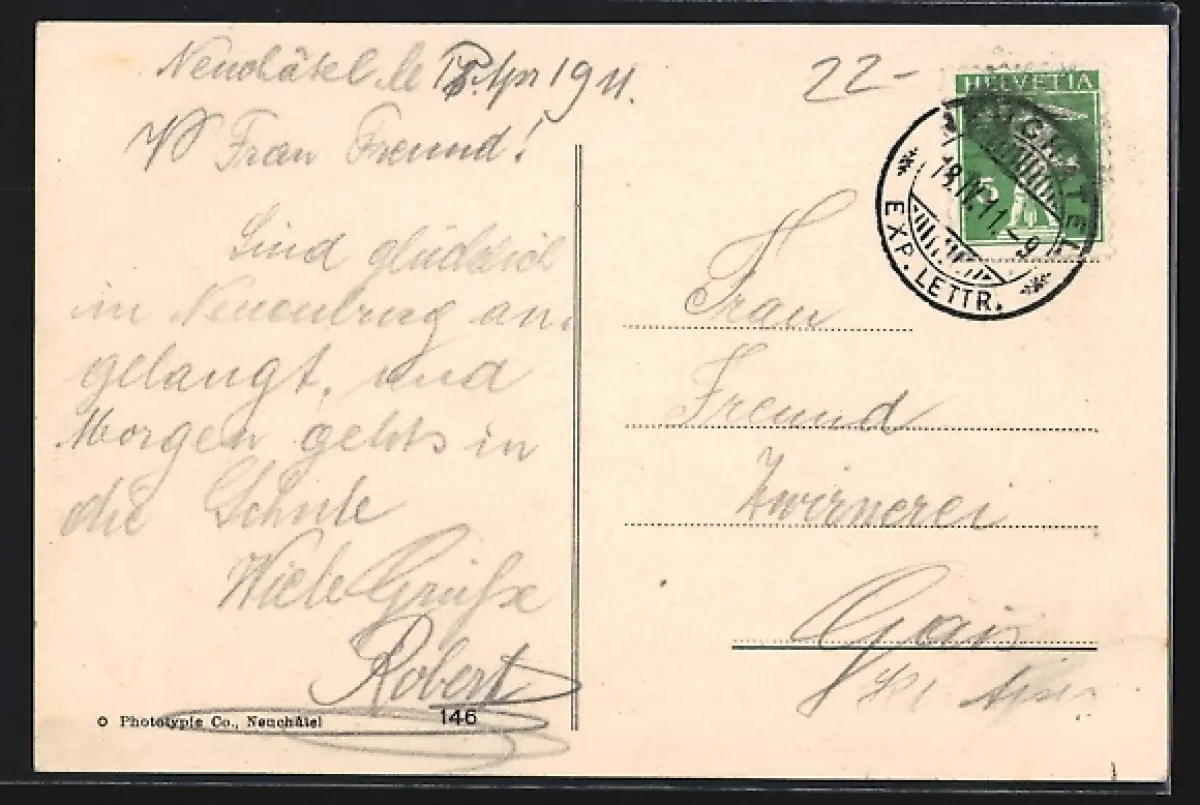 Neuchâtel le 18. Apr 1911.
22-
Frau Freund!
Sind glücklich
in Neuenburg an,
gelangt, und
Morgen gehts in
die Schule
Viele Grüße
Robert
© Phototypie Co., Neuchâtel
146
HELVETIA
5
NEUCHATEL
18.IV.11.-9
EXP. LETTR.
Frau
Freund
Zwirnerei
Gais
Kt